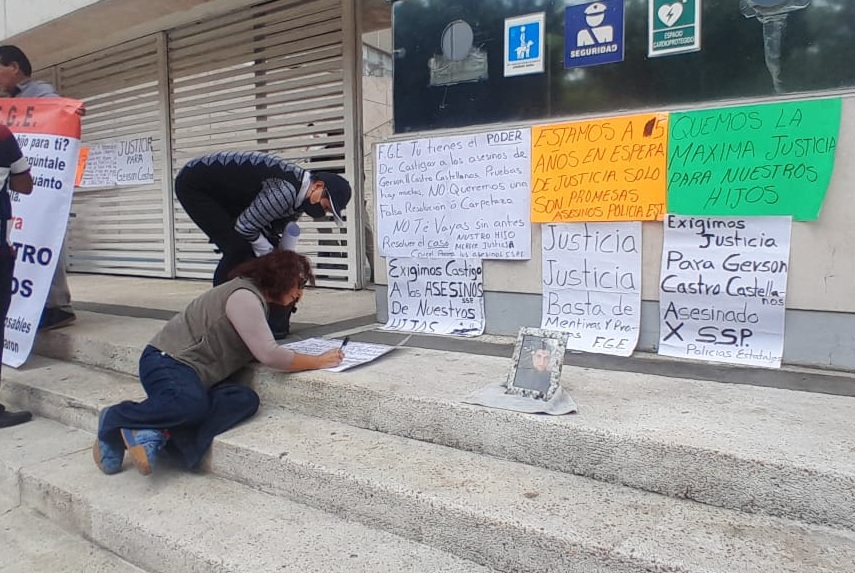 F.G.E.
hijo para ti?
JUSTICIA
PARA
Gerson Castro
SEGURIDAD
ESPACIO
CARDIOPROTEGIDO
F.G.E Tu tienes el PODER
De Castigar a los asesinos de
Gerson Castro Castellanos. Pruebas
hay muchas, NO Queremos una
Falsa Resolución ó Carpetazo
NO Te Vayas sin antes
Resolver el caso NUESTRO HIJO
MERECE JUSTICIA
ASESINOS SSP
ESTAMOS A 5
AÑOS EN ESPERA
DE JUSTICIA SOLO
SON PROMESAS
ASESINOS POLICIA EST
QUEMOS LA
MAXIMA JUSTICIA
PARA NUESTROS
HIJOS
Exigimos Castigo
A los ASESINOS
SSP
De Nuestros
HIJOS
Justicia
Justicia
Basta de
Mentiras Y Pro-
F.G.E
Exigimos
Justicia
Para Gerson
Castro Castella-
nos
Asesinado
X S.S.P.
Policias Estatales